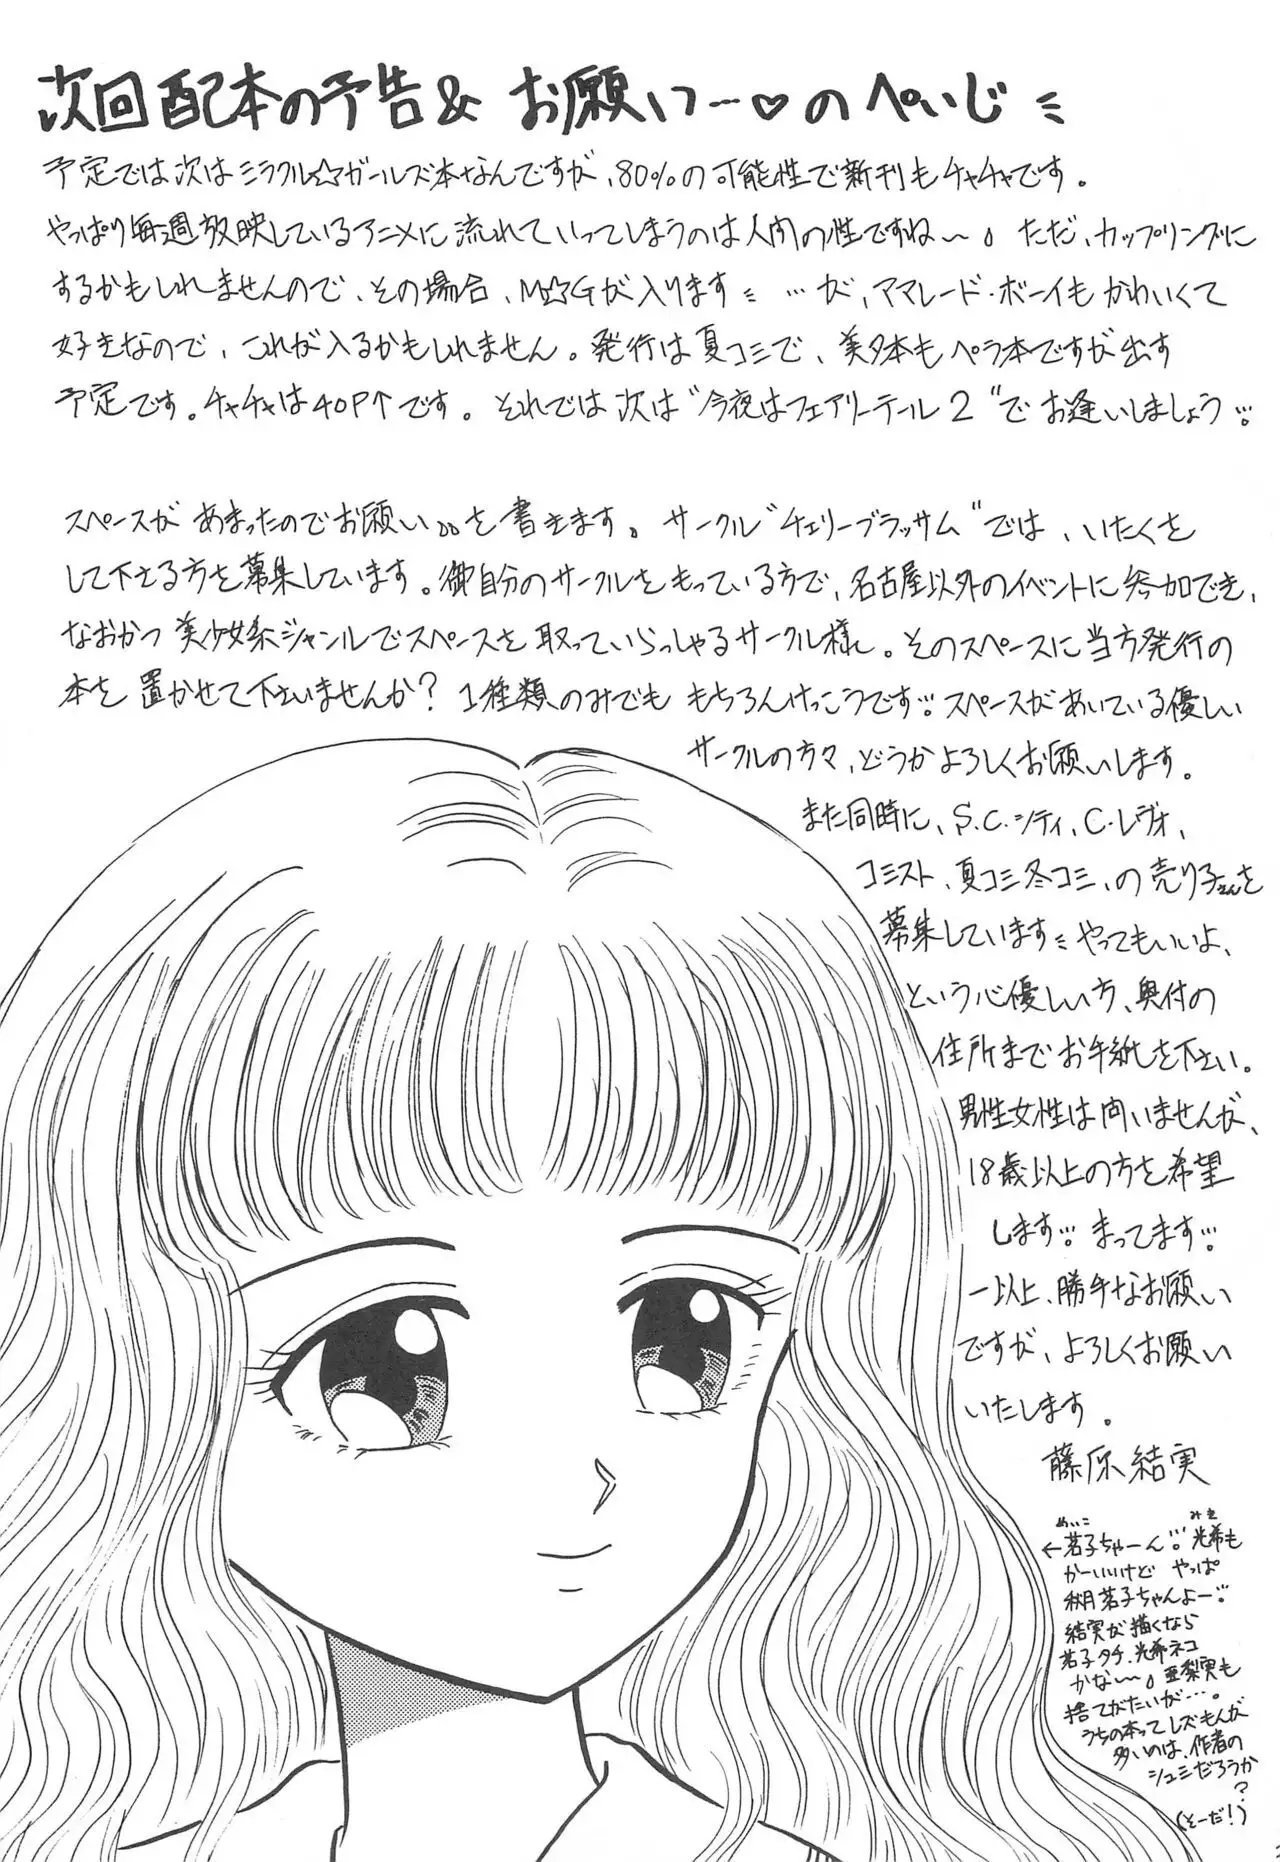 次回配本の予告& お願いっ…♡のぺぃじ
予定では次はミラクル☆ガールズ本なんですが、80%の可能性で新刊もチャチャです。
やっぱり毎週放映しているアニメに流れていってしまうのは人間の性ですね〜。ただ、カップリングに
するかもしれませんので、その場合、M☆Gが入ります …が、ママレード・ボーイもかわいくて
好きなので、これが入るかもしれません。発行は夏コミで、美夕本もペラ本ですが出す
予定です。チャチャは40P↑です。それでは次は"今夜はフェアリーテール2"でお逢いしましょう
スペースがあまったのでお願い。。を書きます。サークル"チェリーブラッサム"では、いたくを
して下さる方を募集しています。御自分のサークルをもっている方で、名古屋以外のイベントに参加でき、
なおかつ美少女系ジャンルでスペースを取っていらっしゃるサークル様。そのスペースに当方発行の
本を置かせて下さいませんか?1種類のみでももちろんけっこうです スペースがあいている優しい
サークルの方々、どうかよろしくお願いします。
また同時に、S.C.シティ、C・レヴォ、
コミスト、夏コミ冬コミ、の売り子さんを
募集しています やってもいいよ、
という心優しい方、奥付の
住所までお手紙を下さい。
男性女性は問いませんが、
18歳以上の方を希望
します まってます
ー以上、勝手なお願い
ですが、よろしくお願い
いたします。
藤原結実
めいこ みき
←茗子ちゃーん 光希も
かーいいけど やっぱ
秋月茗子ちゃんよー
結実が描くなら
茗子タチ、光希ネコ
かな〜。亜梨実も
捨てがたいが…。
うちの本ってレズもんが
多いのは、作者の
シュミだろうか
?
(そーだ!)